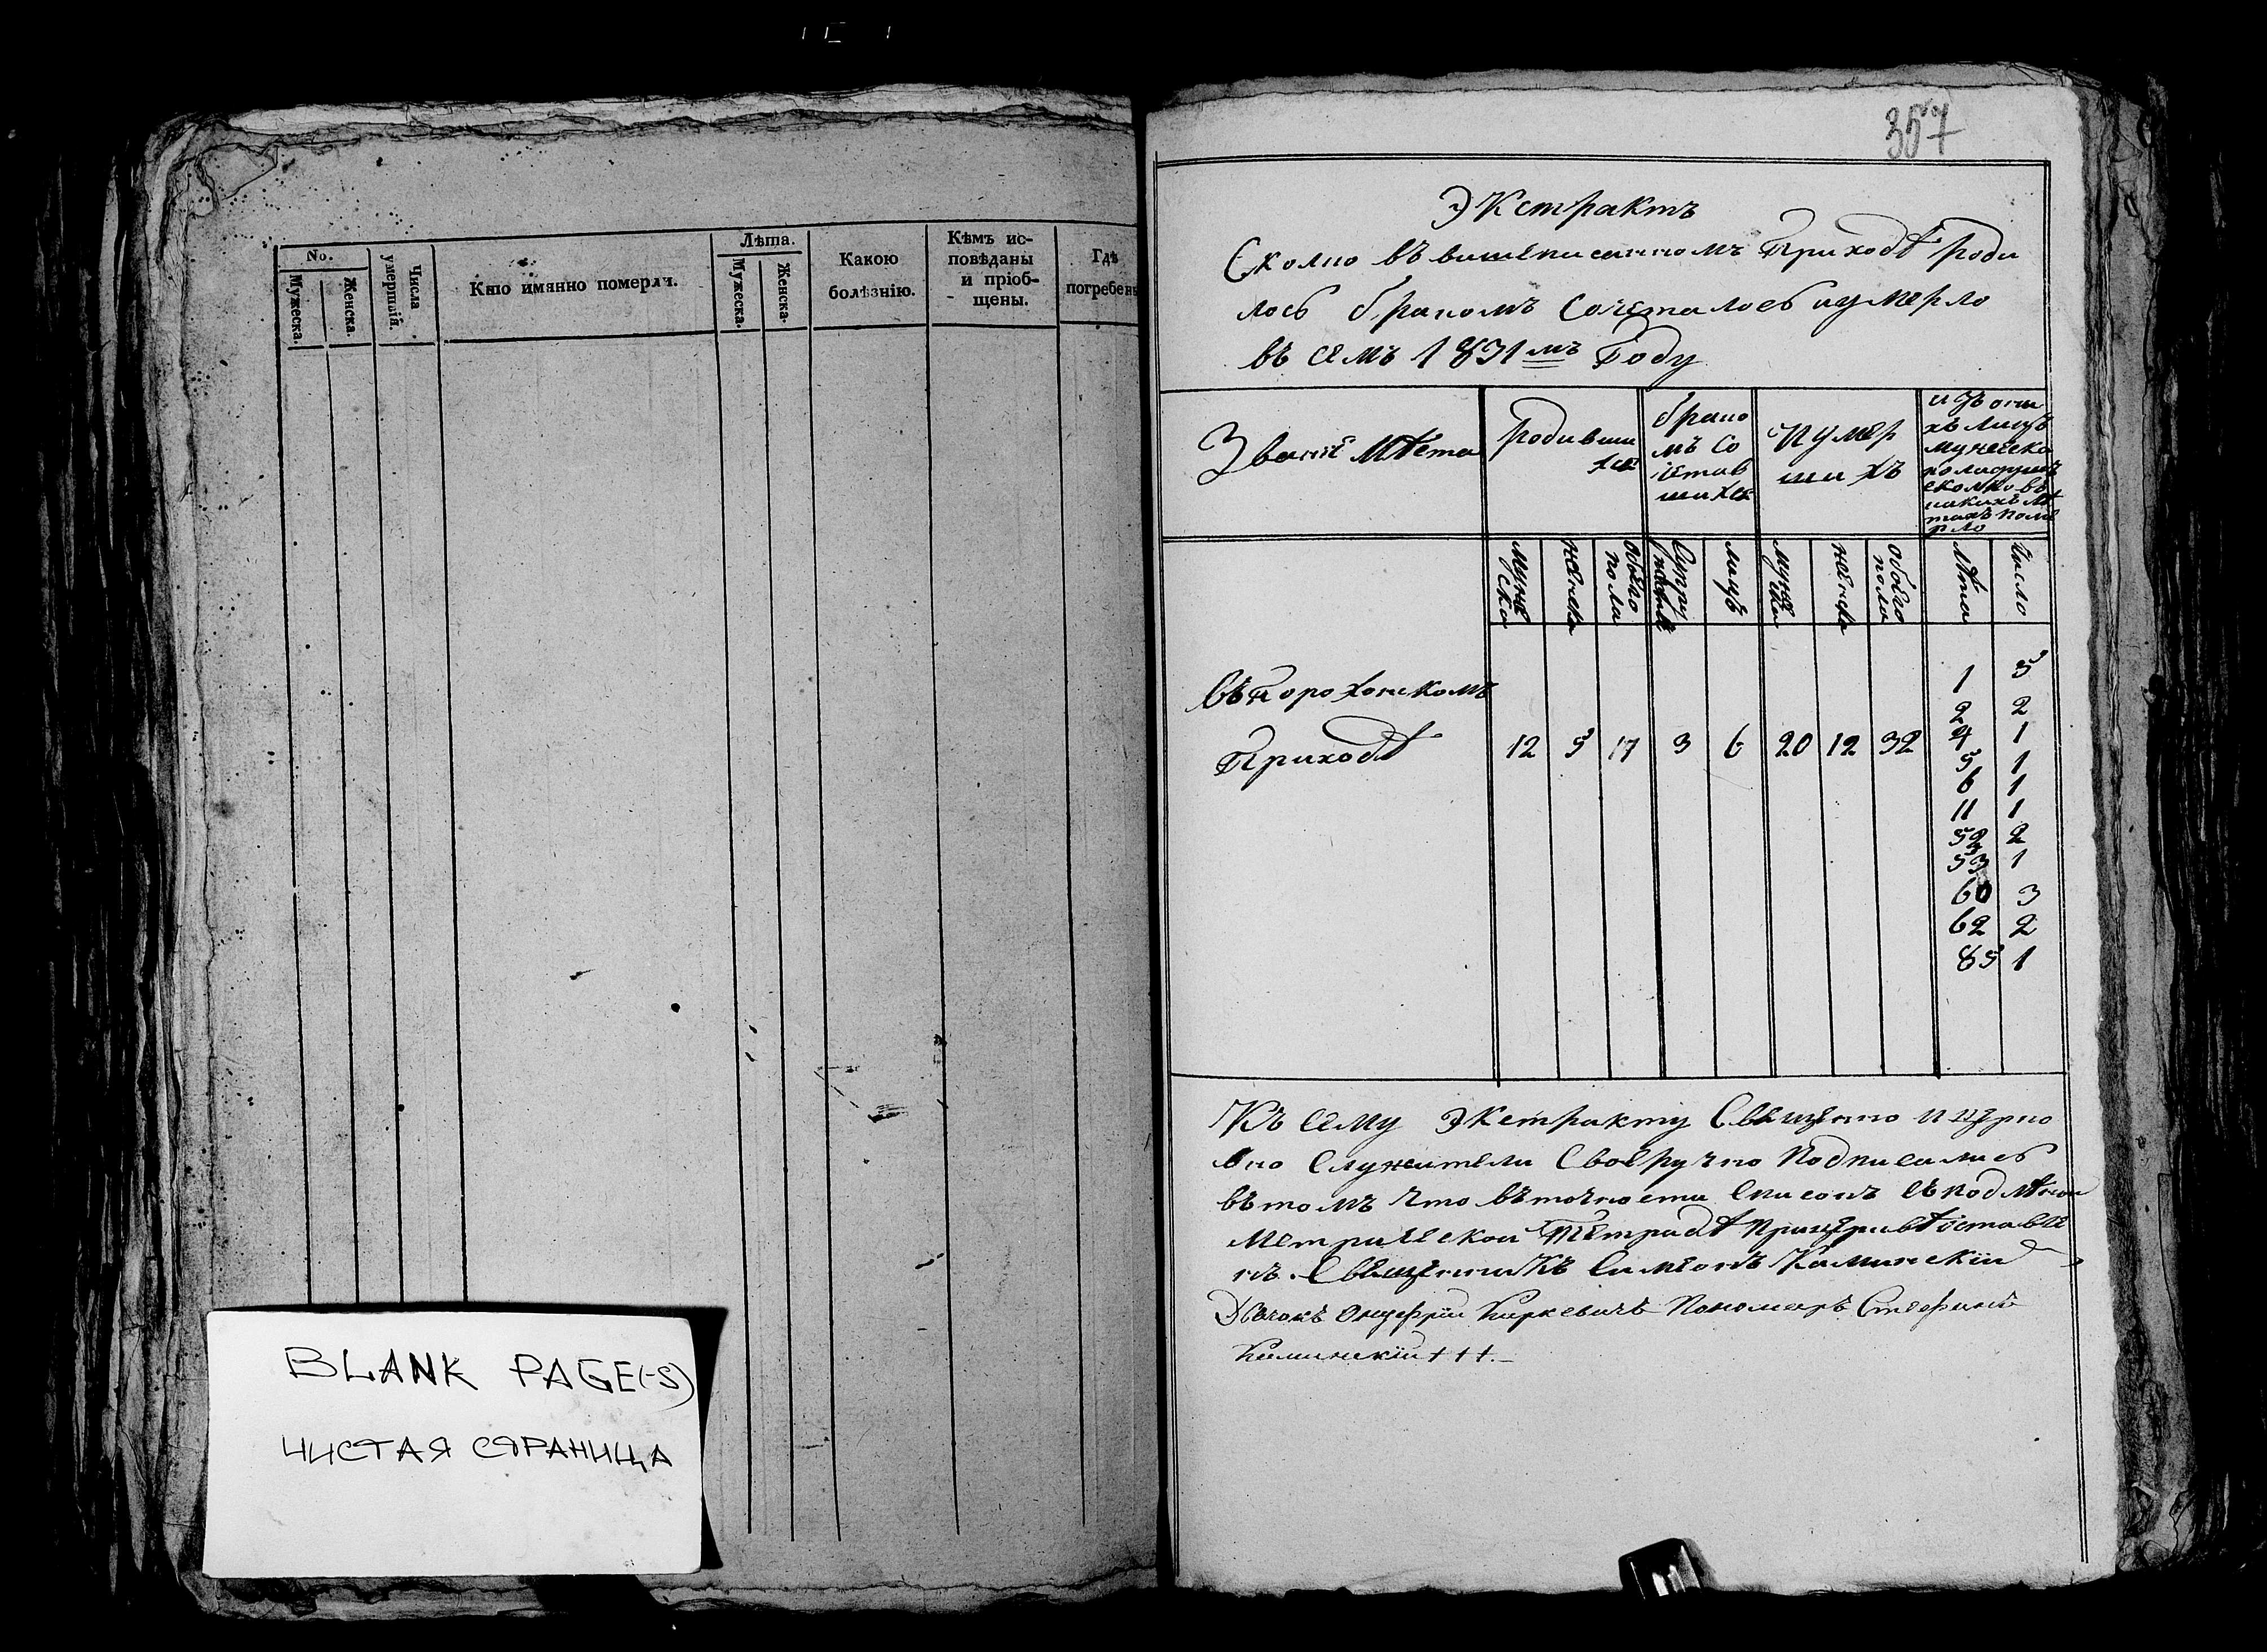 No.
Мужеска.
Женска.
Числа умершій.
Кто имянно померли.
Лѣта.
Мужеска.
Женска.
Какою
болѣзнію.
Кѣмъ ис-
повѣданы
и пріоб-
щены.
Гдѣ
погребены
BLANK PAGE(-S)
ЧИСТАЯ СТРАНИЦА
357
Экстрактъ
Сколно въ вишеписанномъ Приходѣ роди
лось браномъ Сочеталось иумерло
въ семъ 1831мъ Году
Званіе Мѣста
родивши
хся
брано
мъ Со
четав
шихся
Иумер
шихъ
изъ они
хъ лицъ
мужеска
пола душъ
сколко въ
какихъ лѣ
тахъ поме
рло
муже
ска
женска
обоего
пола
Супру
лицъ
муже
ска
женска
обоего
пола
лѣта
число
въ Порохонскомъ
Приходѣ
12 5 17 3 6 20 12 32
1 5
2 2
4 1
5 1
6 1
11 1
52 2
53 1
60 3
62 2
85 1
Къ сему Экстракту Свещенно и церно
вно Служители Своеручно Подписались
въ томъ что въ точности Списонъ съ подлѣнои
Метрической Тетрадѣ При церквѣ оставле
нъ. Свещенникъ Симеонъ Каминскій
Дячокъ Онуфрій Киркевичъ Пономаръ Стефаній
Каминскій +++.